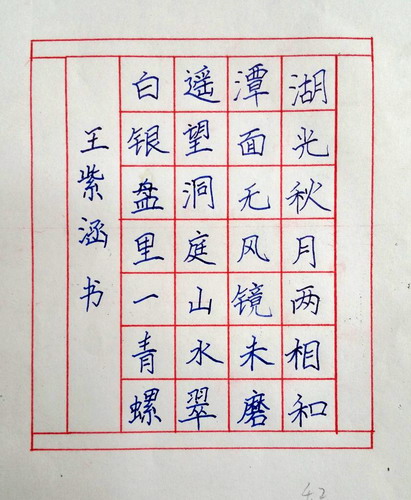 湖光秋月两相和
潭面无风镜未磨
遥望洞庭山水翠
白银盘里一青螺
王紫涵书
4.2